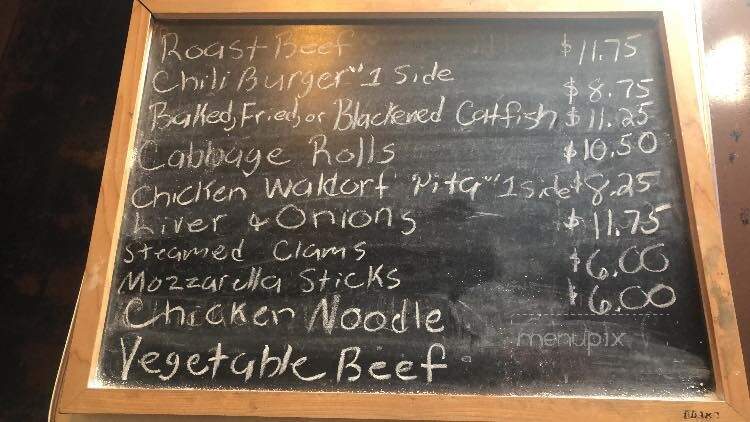 Roast Beef $11.75
Chili Burger "1 Side $8.75
Baked, Fried, or Blackened Catfish $11.25
Cabbage Rolls $10.50
Chicken Waldorf "Pita" 1 side $8.25
Liver & Onions $11.75
Steamed Clams $6.00
Mozzarella Sticks $6.00
Chicken Noodle
menupix
Vegetable Beef